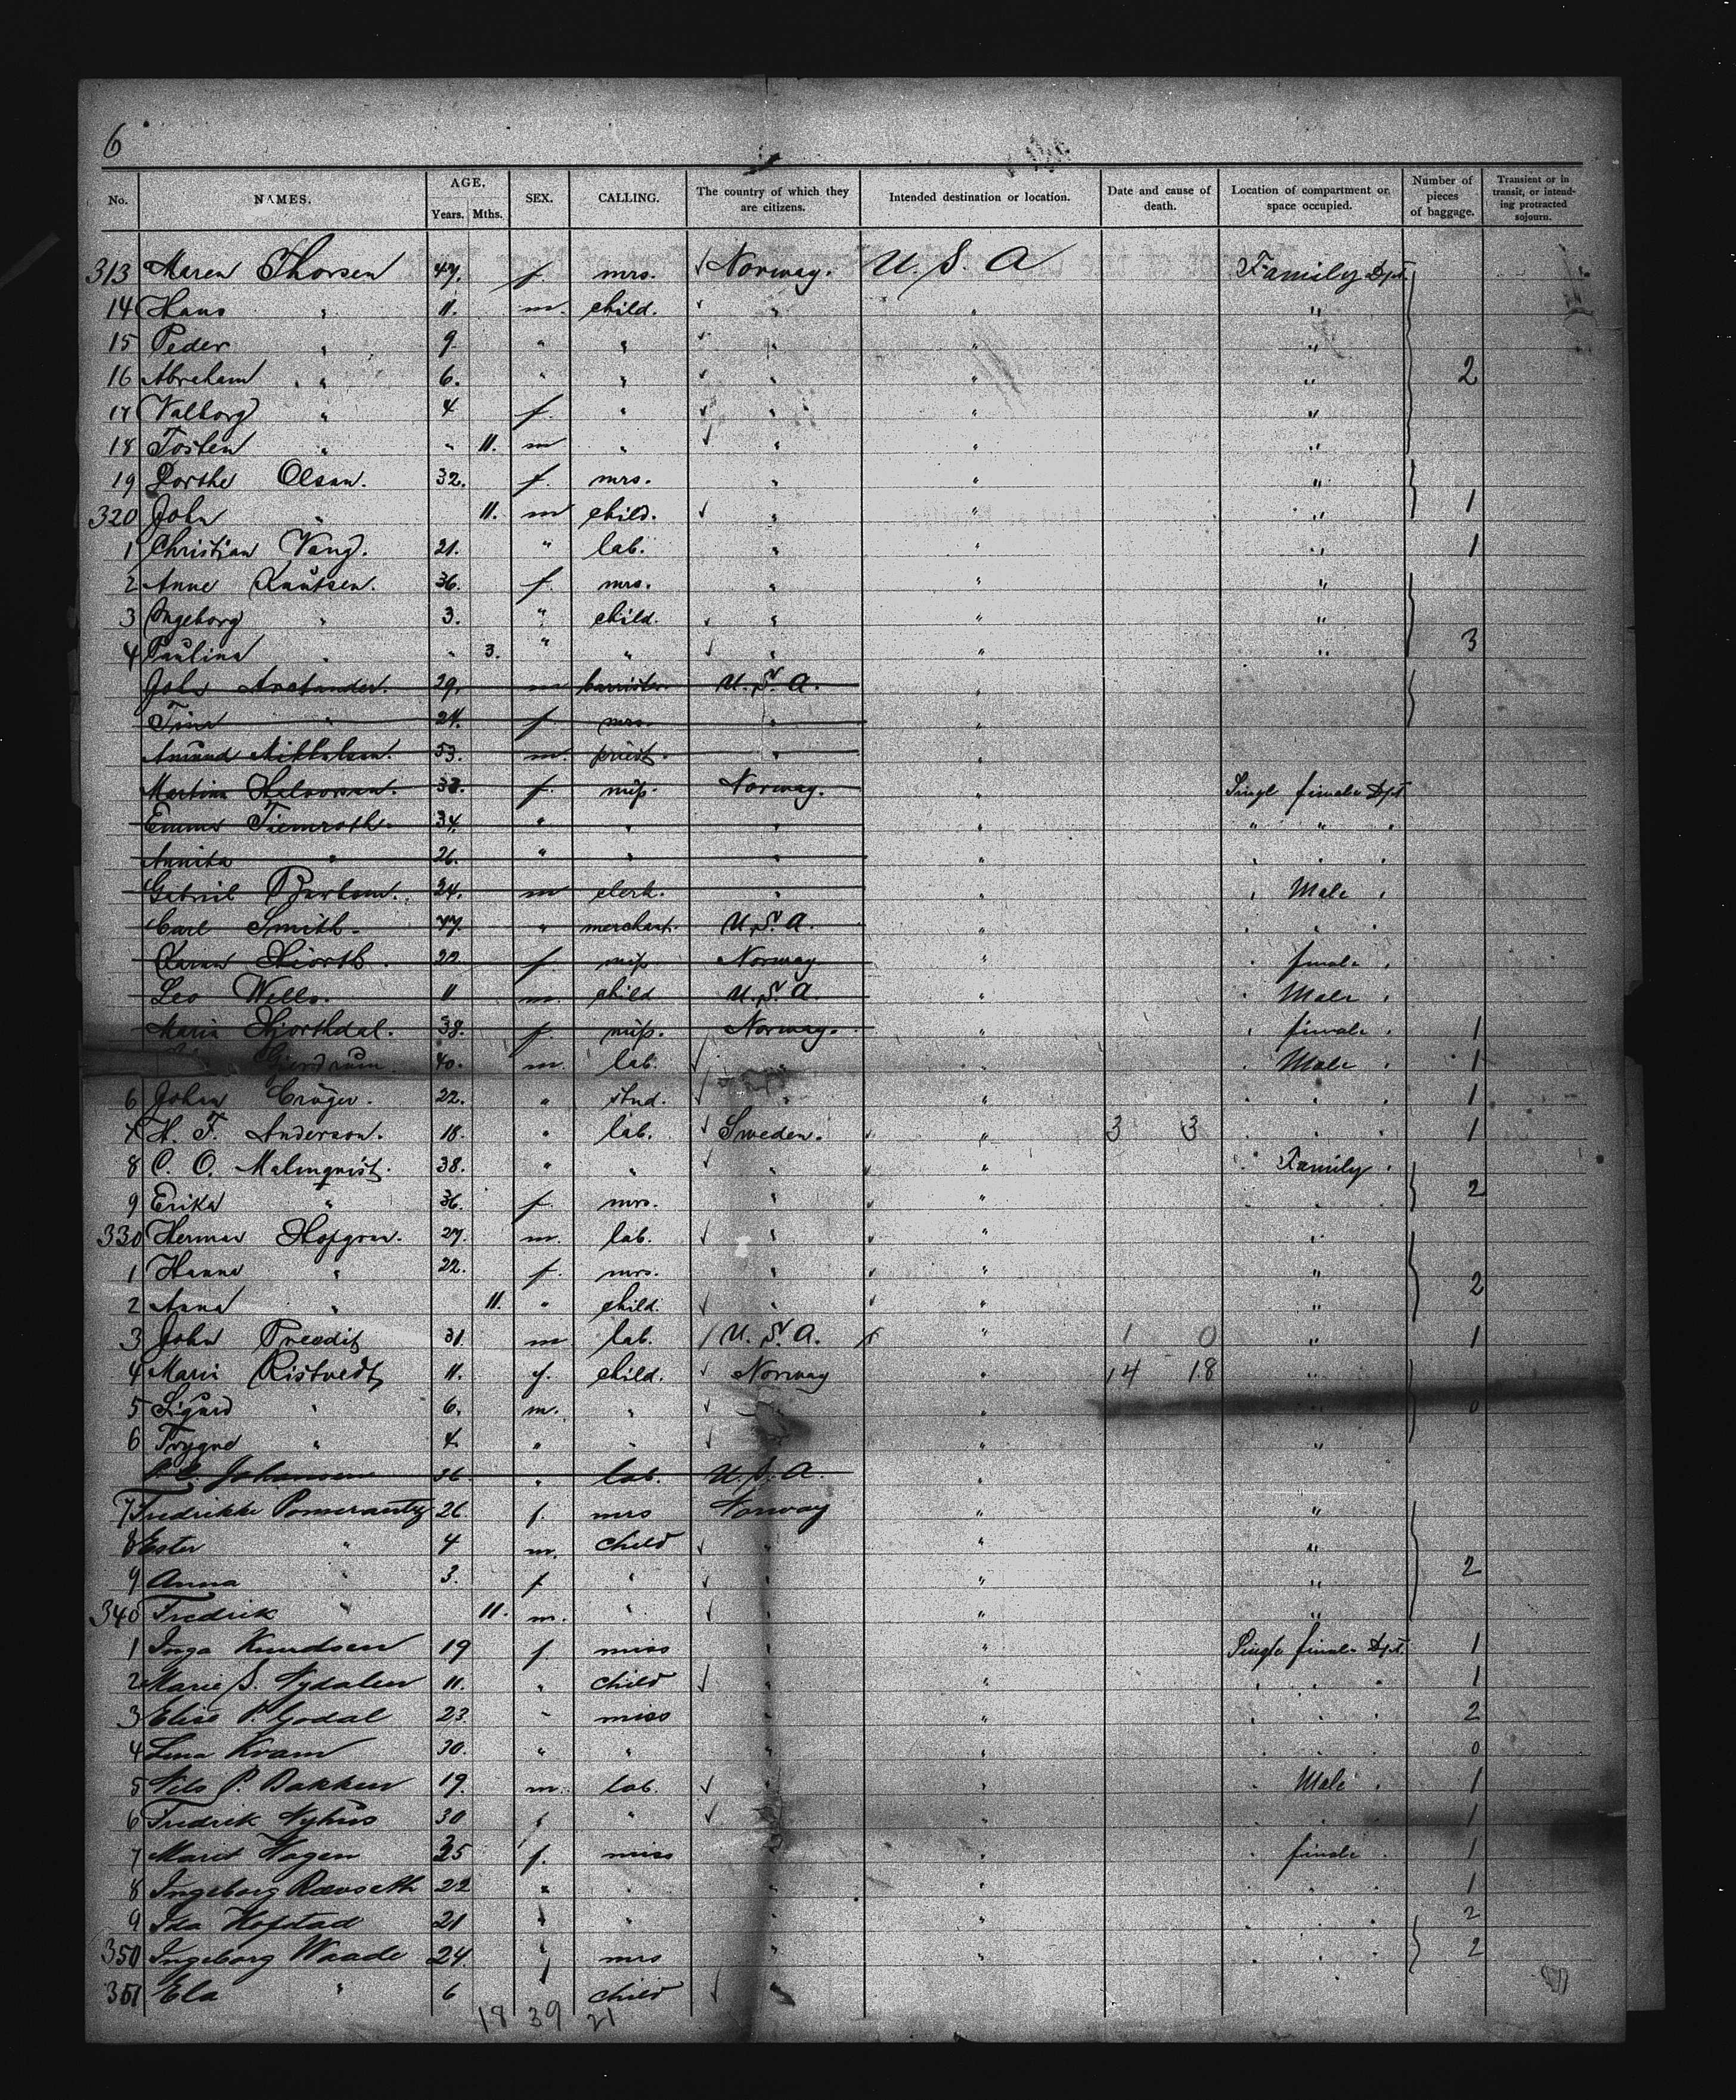 6
No. NAMES. AGE. Years. Mths. SEX. CALLING. The country of which they are citizens. Intended destination or location. Date and cause of death. Location of compartment or space occupied. Number of pieces of baggage. Transient or in transit, or intending protracted sojourn.
313 Maren Thorsen 47. f. mrs. Norway. U. S. A Family Dpt.
14 Hans " 11. m. child. " " "
15 Peder " 9 " " " " "
16 Abraham " 6. " " " " " 2
17 Valborg " 4 f. " " " "
18 Tosten " " 11. m " " " "
19 Dorthe Olsen. 32. f. mrs. " " "
320 John " 11. m child. " " " 1
1 Christian Vang. 21. " lab. " " " 1
2 Anne Knutsen. 36. f. mrs. " " "
3 Ingeborg " 3. " child. " " "
4 Paulina " " 3. " " " " " 3
John 29. m barrister. U. S. A. "
Tina " 24. f mrs. " "
Amund Mikkelsen. 53. m. priest. " "
Martina Halvorsen. 33. f. miss. Norway. " Singl female Dpt
Emma Tiemroth. 34. " " " " " " "
Annita " 26. " " " " " " "
Gabriel 24. m clerk. " " " Male "
Carl Smith. 47. " merchant. U. S. A. " " " "
Karen Hiorth. 22. f. miss Norway " " female "
Leo Wells. 11 m. child U. S. A. " " Male "
Maria Hjorthdal. 38. f. miss. Norway. " " female " 1
Gjerdrum 40. m. lab. " " " Male " 1
6 Johan Crüger. 22. " stud. " " " " " 1
7 H. F. Anderson. 18. " lab. Sweden. " 3 3 " " " 1
8 C. O. Malmqvist. 38. " " " " " Family "
9 Erika " 36. f. mrs. " " " " 2
330 Herman Hofgren. 27. m. lab. " " "
1 Hanna " 22. f. mrs. " " "
2 Anna " 11. " child. " " " 2
3 John 31. m lab. U. S. A. " 1 0 " 1
4 Marie Ristvedt 11. f. child. Norway " 14 18 "
5 Sigurd " 6. m. " " " 0
6 Trygve " 4. " " " "
Johansen 36 " lab. U. S. A. "
7 Fredrikke Pomerantz 26. f. mrs Norway " "
8 Ester " 4 m. child " " "
9 Anna " 3. f " " " " 2
340 Fredrik " 11. m. " " " "
1 Inga Knudsen 19 f. miss " " Single female Dpt. 1
2 Marie S. Nydalen 11. " child " " " " " 1
3 Elise P. Godal 23. " miss " " " " " 2
4 Lina Kram 30. " " " " " " " 0
5 Nils P. Bakken 19. m. lab. " " " Male " 1
6 Fredrik Nyhus 30 " " " " " 1
7 Marit Hagen 25 f. miss " " female " 1
8 Ingeborg Rævseth 22 " " " " " " " 1
9 Ida Hofstad 21 " " " " " " " 2
350 Ingeborg Waade 24. " mrs " " " " " 2
351 Ela " 6 child
18 39 21